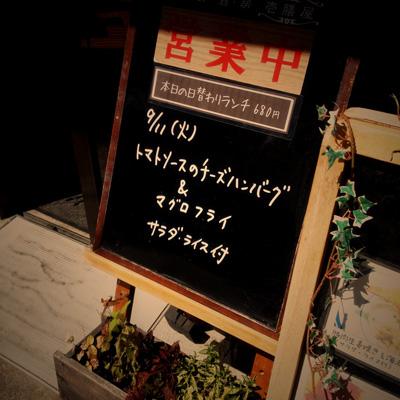 壱膳屋
営業中
本日の日替わりランチ 680円
9/11(火)
トマトソースのチーズハンバーグ
&
マグロフライ
サラダ・ライス付